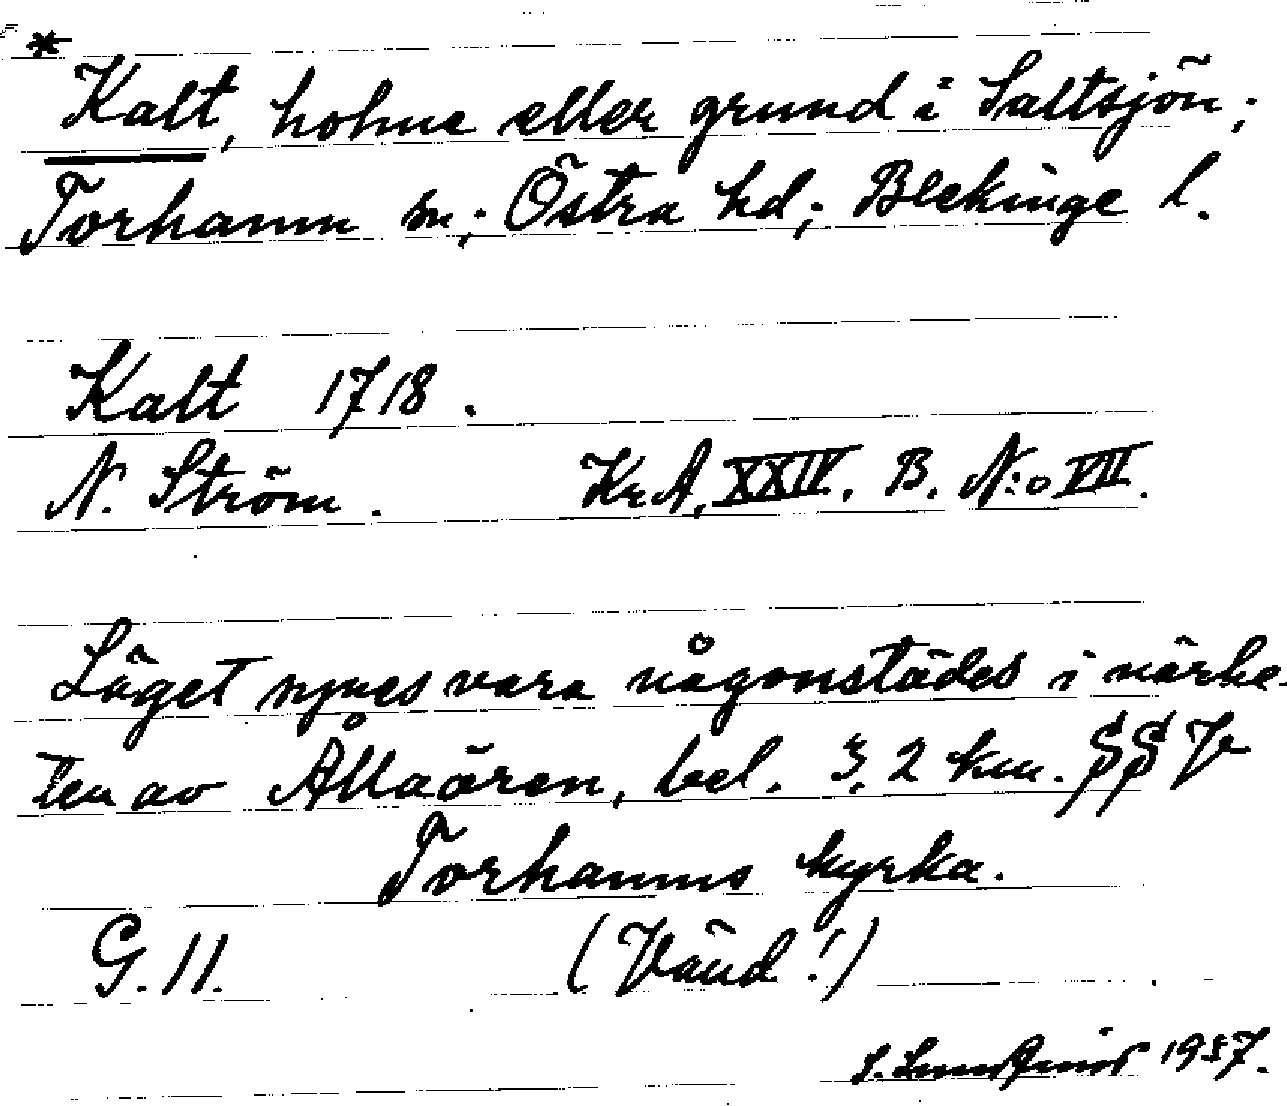 *
Kalt, holme eller grund i Saltsjön;
Torhamn sn; Östra hd; Blekinge l.
Kalt 1718.
N. Ström. KrA, XXIV. B. N:o VII.
Läget synes vara någonstädes i närhe-
ten av Ållaören, bel. 3,2 km. SSV
Torhamns kyrka.
G. 11. (Vänd!)
S. 1957.